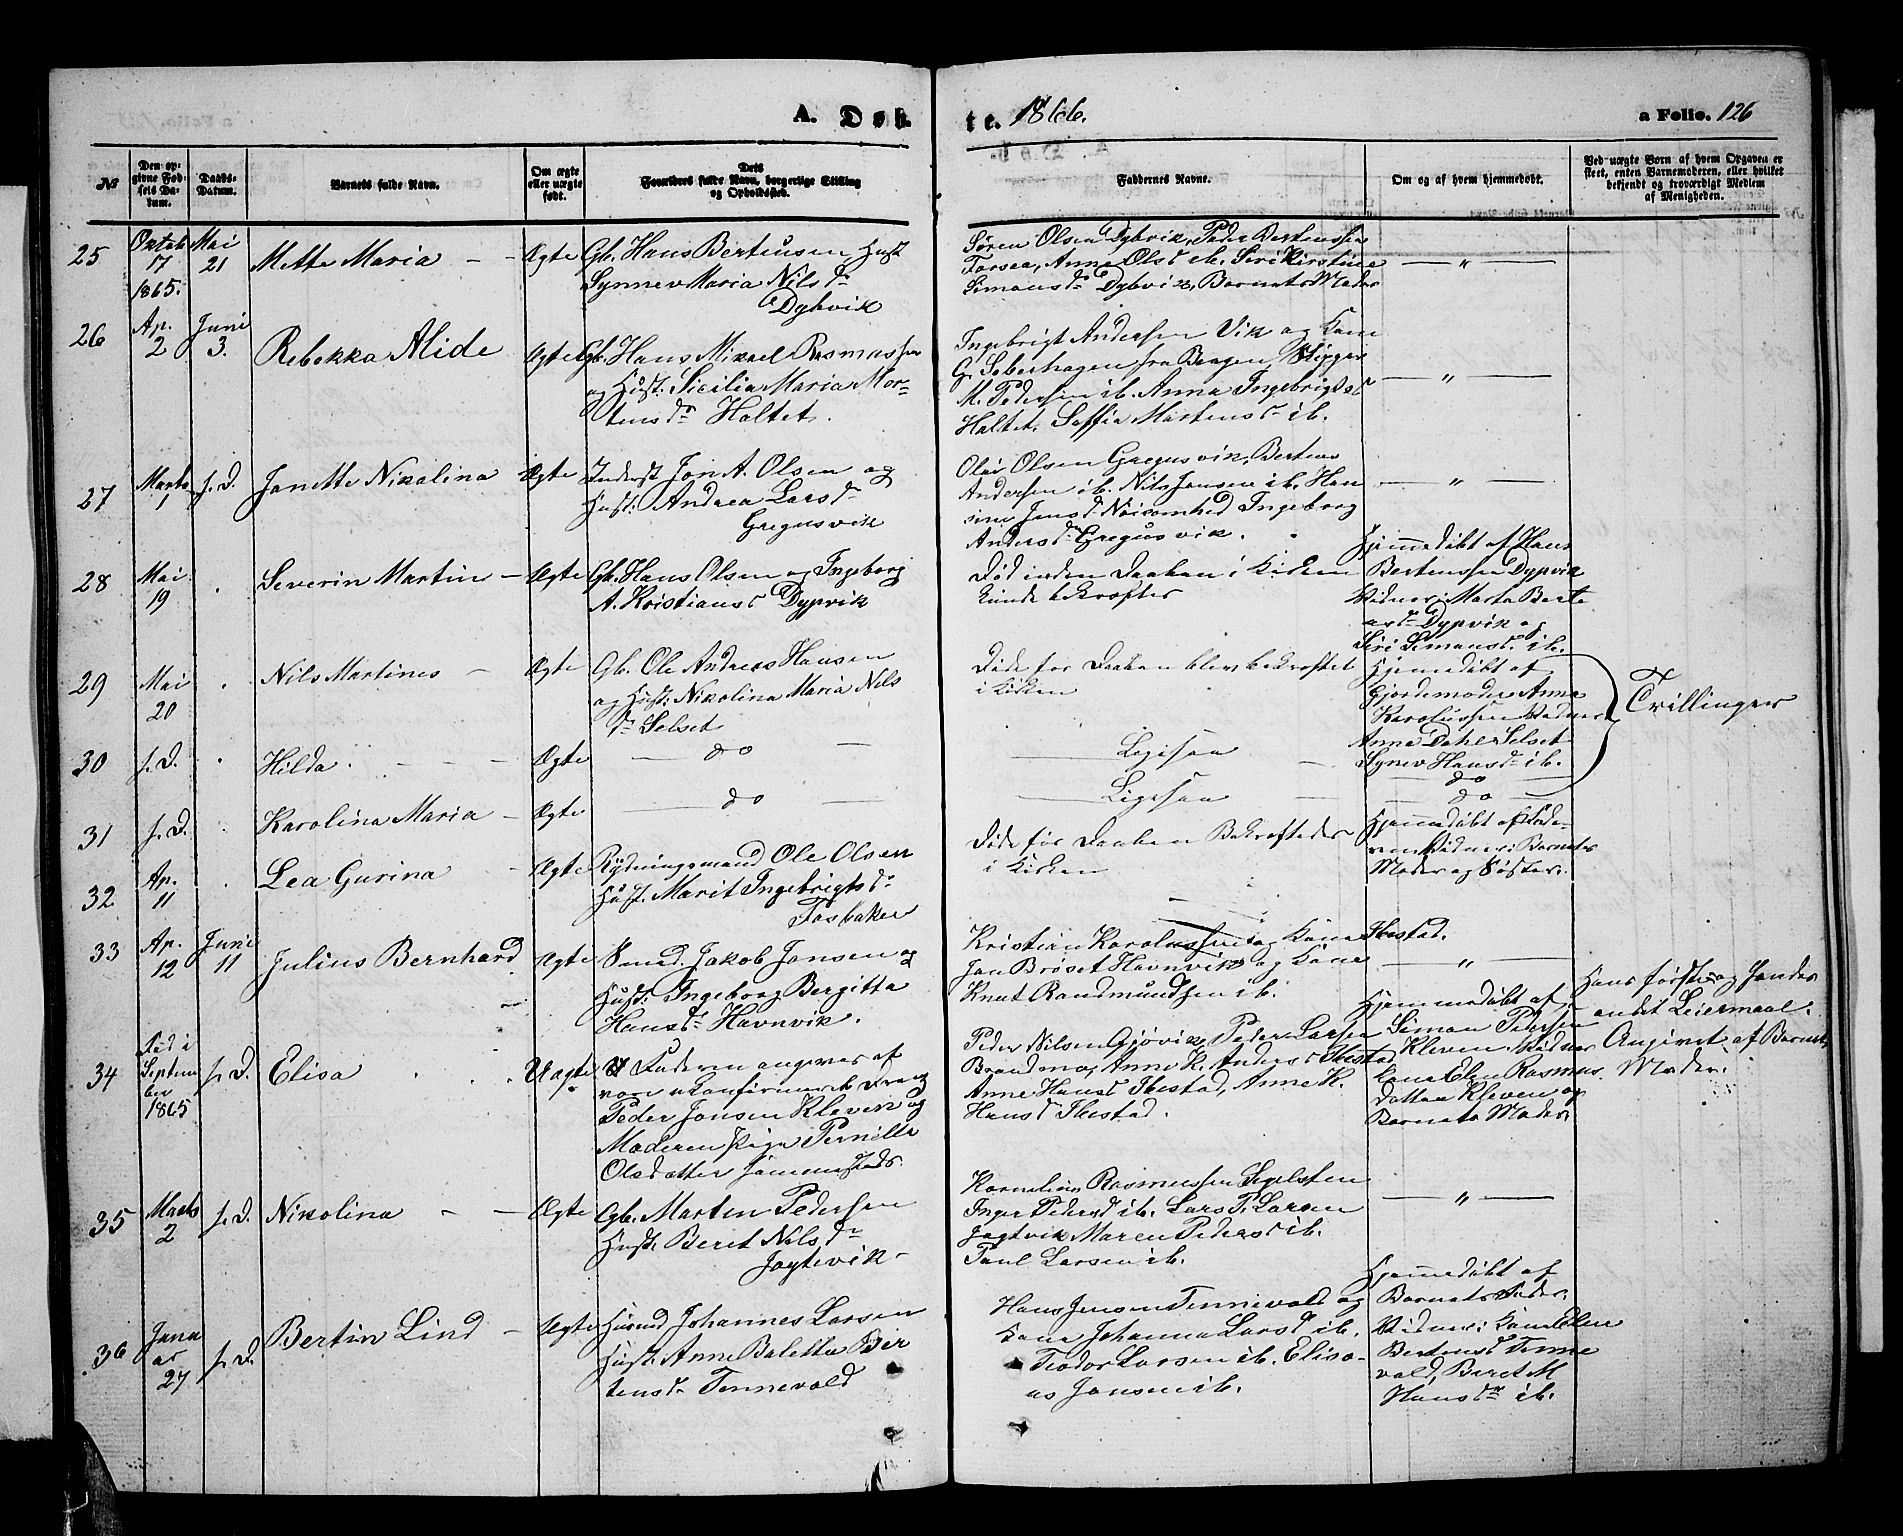 A. Døb-
te. 1866.
a Folio. 126
№
Den op-
givne Fød-
sels Da-
tum.
Daabs-
Datum.
Barnets fulde Navn.
Om ægte
eller uægte
født.
Dets
Forældres fulde Navn, borgerlige Stilling
og Opholdssted.
Faddernes Navne.
Om og af hvem hjemmedøbt.
Ved uægte Børn af hvem Opgaven er
skeet, enten Barnemoderen, eller hvilket
bekjendt og troværdigt Medlem
af Menigheden.
25
Octob
17
1865.
Mai
21
Mette Maria
Ægte
Gb. Hans Bertensen Hust
Synnev Maria Nilsd
Dybvik
Søren Olsen Dybvik, Peder Bertensen
Forsea, Anna Olsd ib. Siri Kirstine
Simonsd Dybvik, Barnets Moder
— " —
26
Ap.
2
Juni
3.
Rebekka Alide
Ægte
Gb. Hans Mikael Rasmussen
og Hust. Sicilia Maria Mor-
tensdr Haltet.
Ingebrigt Andersen Vik og Kone
G. Seberhagen fra Bergen, Skipper
M. Pedersen ib. Anna Ingebrigtsd
Haltet, Soffia Martensd ib.
— " —
27
Marts
1
s.D.
Janette Nikolina
Ægte
Inderst Jon A. Olsen og
Hust. Andrea Larsd
Gregusvik
Olai Olsen Gregusvik, Bertens
Andersen ib. Nils Jensen ib. Han
sine Jensd Nøisomhed Ingeborg
Andersd Gregusvik.
— " —
28
Mai
19
Severin Martin
Ægte
Gb. Hans Olsen og Ingeborg
A. Kristiansd Dypvik
Død inden Daaben i Kirken
kunde bekræftes
Hjemmedøbt af Hans
Bertenssen Dypvik
Vidner: Marta Berte
nsdr Dypvik og
Siri Simonsd ib.
29
Mai
20
Nils Martines
Ægte
Gb. Ole Andreas Hansen
og Hust. Nikolina Maria Nils
dr Selset
Døde før Daaben blev bekræftet
i Kirken
Hjemmedøbt af
Gjordemoder Anna
Karolussen Vidner
Anne Dahl Selset
Synev Hansd ib.
Trillinger
30
s.D.
Hilda
Ægte
do
Ligesaa
do
31
s.D.
Karolina Maria
Ægte
do
Ligesaa
do
32
Ap.
11
Lea Gurina
Ægte
Rydningsmand Ole Olsen
Hust. Marit Ingebrigtsd
Fosbakken
Døde før Daaben Bekræftedes
i Kirken
Hjemmedøbt af Fade-
ren Vidner: Barnets
Moder og Søster.
33
Ap.
12
Juni
11
Julius Bernhard
Ægte
Smed. Jakob Jansen og
Hust. Ingeborg Bergitta
Hansd Havnvik.
Kristian Karolussen og Kone Ibestad.
Jan Brøset Havnvik og Kone
Knut Randmundsen ib.
— " —
34
Fød i
Septem
ber
1865
s.D.
Elisa
Uægte
Faderen angives af
være ukonfirmeret Dreng
Peder Jonsen Kleven og
Moderen Pige Pernille
Olsdatter sammesteds.
Peder Nilsen Gjøvik, Peder Larsen
Brandmo, Anne K. Andersd Ibestad
Anne Hansd Ibestad, Anne K.
Hansd Ibestad.
Hjemmedøbt af
Simon Pedersen
Kleven. Vidner
Kone Elen Rasmus
datter Kleven og
Barnets Moder
Hans første og hendes
andet Leiermaal.
Angivet af Barnets
Moder.
35
Marts
2
s.D.
Nikolina
Ægte
Gb. Marten Pedersen
Hust. Beret Nilsd
Jogtevik
Kornelius Rasmussen Sselsten
Inger Pedersd ib. Lars P. Larsen
Jogtvik Maren Pedersd ib.
Paul Larsen ib.
— " —
36
Janu
ar
27
s.D.
Bertin Lind
Ægte
Husmd Johannes Larsen
Hust. Anne Baletta Ber
tensdr Tennevold
Hans Jensen Tennevold og
Kone Johanna Larsd ib.
Teodor Larsen ib. Elisa-
as Jansen ib.
Hjemmedøbt af
Barnets Fader.
Vidner: Kone Elen
Bertensd Tenne
vold, Beret M
Hansdr ib.